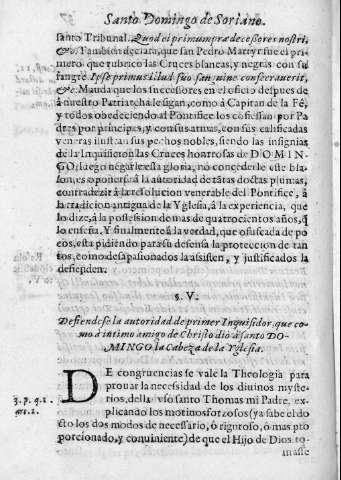 Santo Domingo de Soriano.
santo Tribunal. Quod ei primum prædecessores nostri,
&c. Tambien declara, que san Pedro Martyr fue el pri-
mero que rubrico las Cruces blancas, y negras con su
sangre. Ipse primus illud suo sanguine consecrauerit,
&c. Manda que los sucessores en el oficio despues de
à nuestro Patriarcha le sigan, como à Capitan de la Fé,
y todos obedeciendo al Pontifice los cófiessan por Pa
dres por principes, y con sus armas, con sus calificadas
y veneras ilustran sus pechos nobles, siendo las insignias
de la Inquisicion las Cruces honrosas de DOMIN-
GO; luego negarle esta gloria, no concederle este bla-
son, es oponerse à la autoridad de tátas doctas plumas,
contradezir à la resolucion venerable del Pontifice, à
la tradicion antigua de la Yglesia, à la experiencia, que
lo dize, à la possession de mas de quatrocientos años, q̃
lo enseña, Y finalmente à la verdad, que ofuscada de po
cos, està pidiendo para su defensa la proteccion de tan
tos, como desapasionados la asisten, y justificados la
defienden.
§. V.
Defiendese la autoridad de primer Inquisidor, que co-
mo à intimo amigo de Christo diò à santo DO-
MINGO la Cabeza de la Yglesia.
DE congruencias se vale la Theologia para
prouar la necessidad de los diuinos myste-
rios, della vsò santo Thomas mi Padre, ex-
3. p. q. 1.
art. 2.
plicando los motinos forzosos (ya sabe el do
sto los dos modos de necessario, ò riguroso, ò mas pro
porcionado, y conuiniente) de que el Hijo de Dios to-
masse